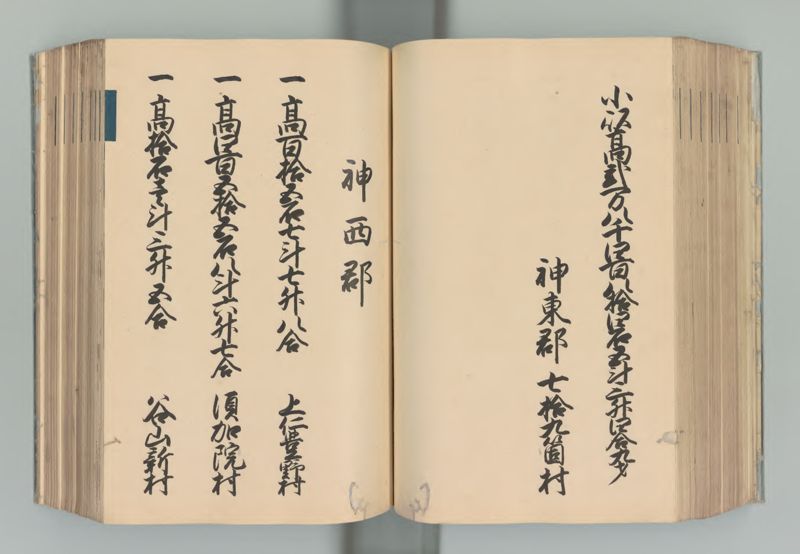 小以高弐万八千四百八拾四石五斗三升四合九夕
神東郡 七拾九箇村
神西郡
一 高百拾五石七斗七升八合 上仁豊野村
一 高四百五拾五石八斗六升七合 須加院村
一 高拾石壱斗三升五合 谷山新村